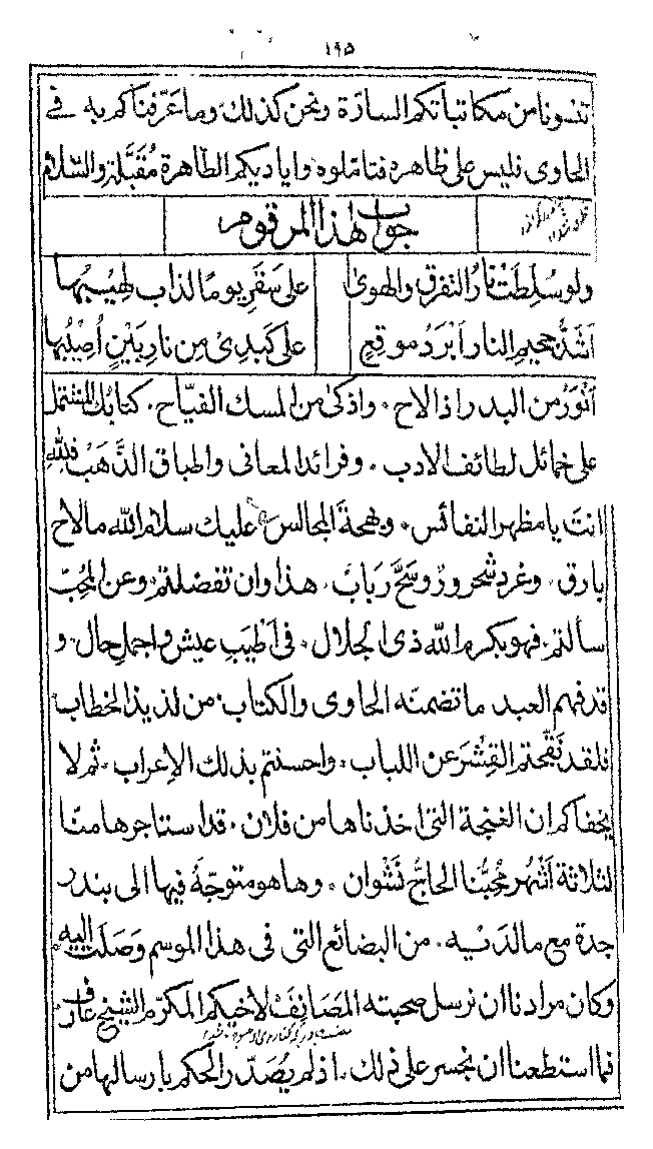 ١٩٥
تنسونا من مكاتباتكم السارّة ونحن كذلك وما عرّفناكم به في
الحاوى فليس على ظاهره فتاملوه واياديكم الطاهرة مُقبّلة والسّلام
جواب هٰذا المرقوم
ولو سُلِطَتْ نارُ التفرق والهوىٰ على سَقَرٍ يومًا لذاب لهيبُها
اَشَدُّ جحيمِ النار اَبْرَدُ موقعٍ على كَبدِىْ مِن نارِ بَيْنٍ اُصِيْبُها
اَنْوَرُ من البدر اذا لاح ٠ واذكىٰ من المسك الفيّاح ٠ كتابُك المشتمل
على خمائل لطائف الادب ٠ وفرائد المعانى واطباق الذَّهَبْ فلِلّٰهِ
انتَ يا مظهر النفائس ٠ وبهجةَ المجالس ٠ عليك سلام الله ما لاح
بارق ٠ وغرد شحرورٌ وسَحَّ رَبابٌ ٠ هذا وان تفضلتم وعن المُحِبّ
سالتم ٠ فهو بكرم الله ذى الجلال ٠ فى اَطْيَبِ عيش واجملِ حال ٠ و
قد فهم العبد ما تضمنه الحاوى والكتاب ٠ من لذيذ الخطاب
فلقد نَقّحتم القِشْرَ عن اللباب ٠ واحسنتم بذلك الاِعراب ٠ ثم لا
يخفاكم ان الغنجة التى اخذناها من فلان ٠ قد استاجرها منّا
لثلاثة اَشْهُر مُحِبُّنا الحاجُّ نَشْوان ٠ وها هو متوجّهٌ فيها الى بندر
جدة مع مالدَيْه ٠ من البضائع التى فى هذا الموسم وَصَلَتْ اليه
وكان مرادنا ان نرسل صحبته المَصَانِفَ لاخيكم المكرّم الشيخ عارف
فما استطعنا ان نجسر على ذلك ٠ اذ لم يُصَدّر الحكم بارسالها من